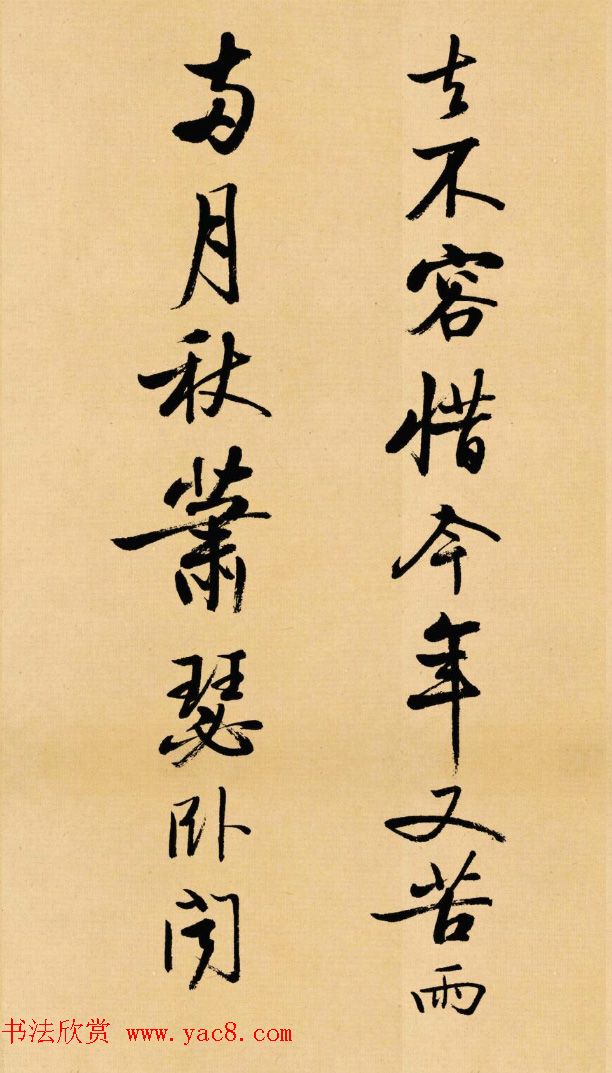 去不容惜今年又苦雨
两月秋萧瑟卧闻
书法欣赏 www.yac8.com